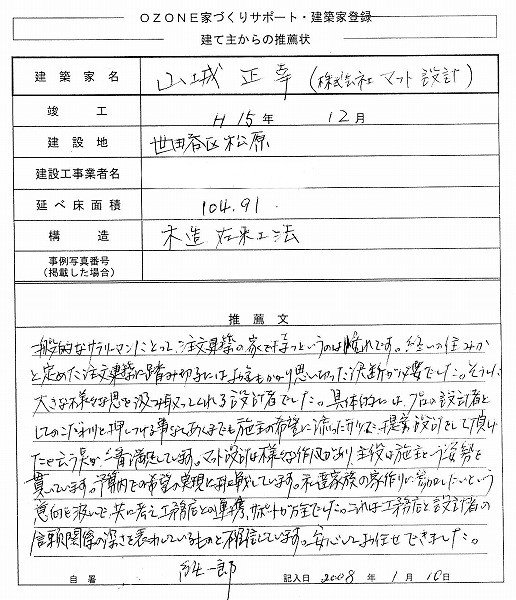 OZONE家づくりサポート・建築家登録
建て主からの推薦状
建築家名 山城 正幸 (株式会社 マット設計)
竣工 H15年 12月
建設地 世田谷区松原
建設工事業者名
延べ床面積 104.91
構造 木造 在来工法
事例写真番号
(掲載した場合)
推薦文
一般的なサラリーマンにとって、注文建築の家を持つというのは憧れです。終いの住みか
と定めた注文建築に踏み切るにはお金もかかり思い切った決断が必要でした。そうした
大きな様々な思を汲み取ってくれる設計者でした。具体的には、プロの設計者と
してのこだわりを押しつける事なくあくまでも施主の希望に添った形で、提案設計をして頂い
たと云う点が一番満足しています。マット設計は様々な作風があり、主役は施主という姿勢を
貫いています。予算内での希望の実現に
私達家族の家作りに参加したいという
意向を 共に考え、工務店との連携、サポートが万全でした。これは工務店と設計者の
信頼関係の深さを表わしているものと確信しています。安心してお任せできました。
自署 一郎 記入日 2008年 1月 10日